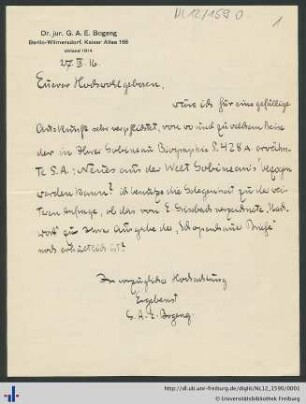 NL 12/1590
1
Dr. jur. G. A. E. Bogeng
Berlin-Wilmersdorf, Kaiser Allee 168
Uhland 1914
27. III. 16.
Euerer Hochwohlgeboren,
wäre ich für eine gefällige
Auskunft sehr verpflichtet, von wo und zu welchem Preise
der in Ihrer Gobineau Biographie S. 428 A erwähn-
te S. A.: „Neues aus der Welt Gobineaus" bezogen
werden kann? Ich benutze die Gelegenheit zu der wei-
teren Anfrage, ob das von E. Grisebach verzeichnete „Nach-
wort" zu Ihrer Ausgabe der „Schopenhauer Briefe"
noch erhältlich ist?
In vorzüglicher Hochachtung
Ergebenst
G. A. E. Bogeng.
http://dl.ub.uni-freiburg.de/diglit/NL12_1590/0001
© Universitätsbibliothek Freiburg